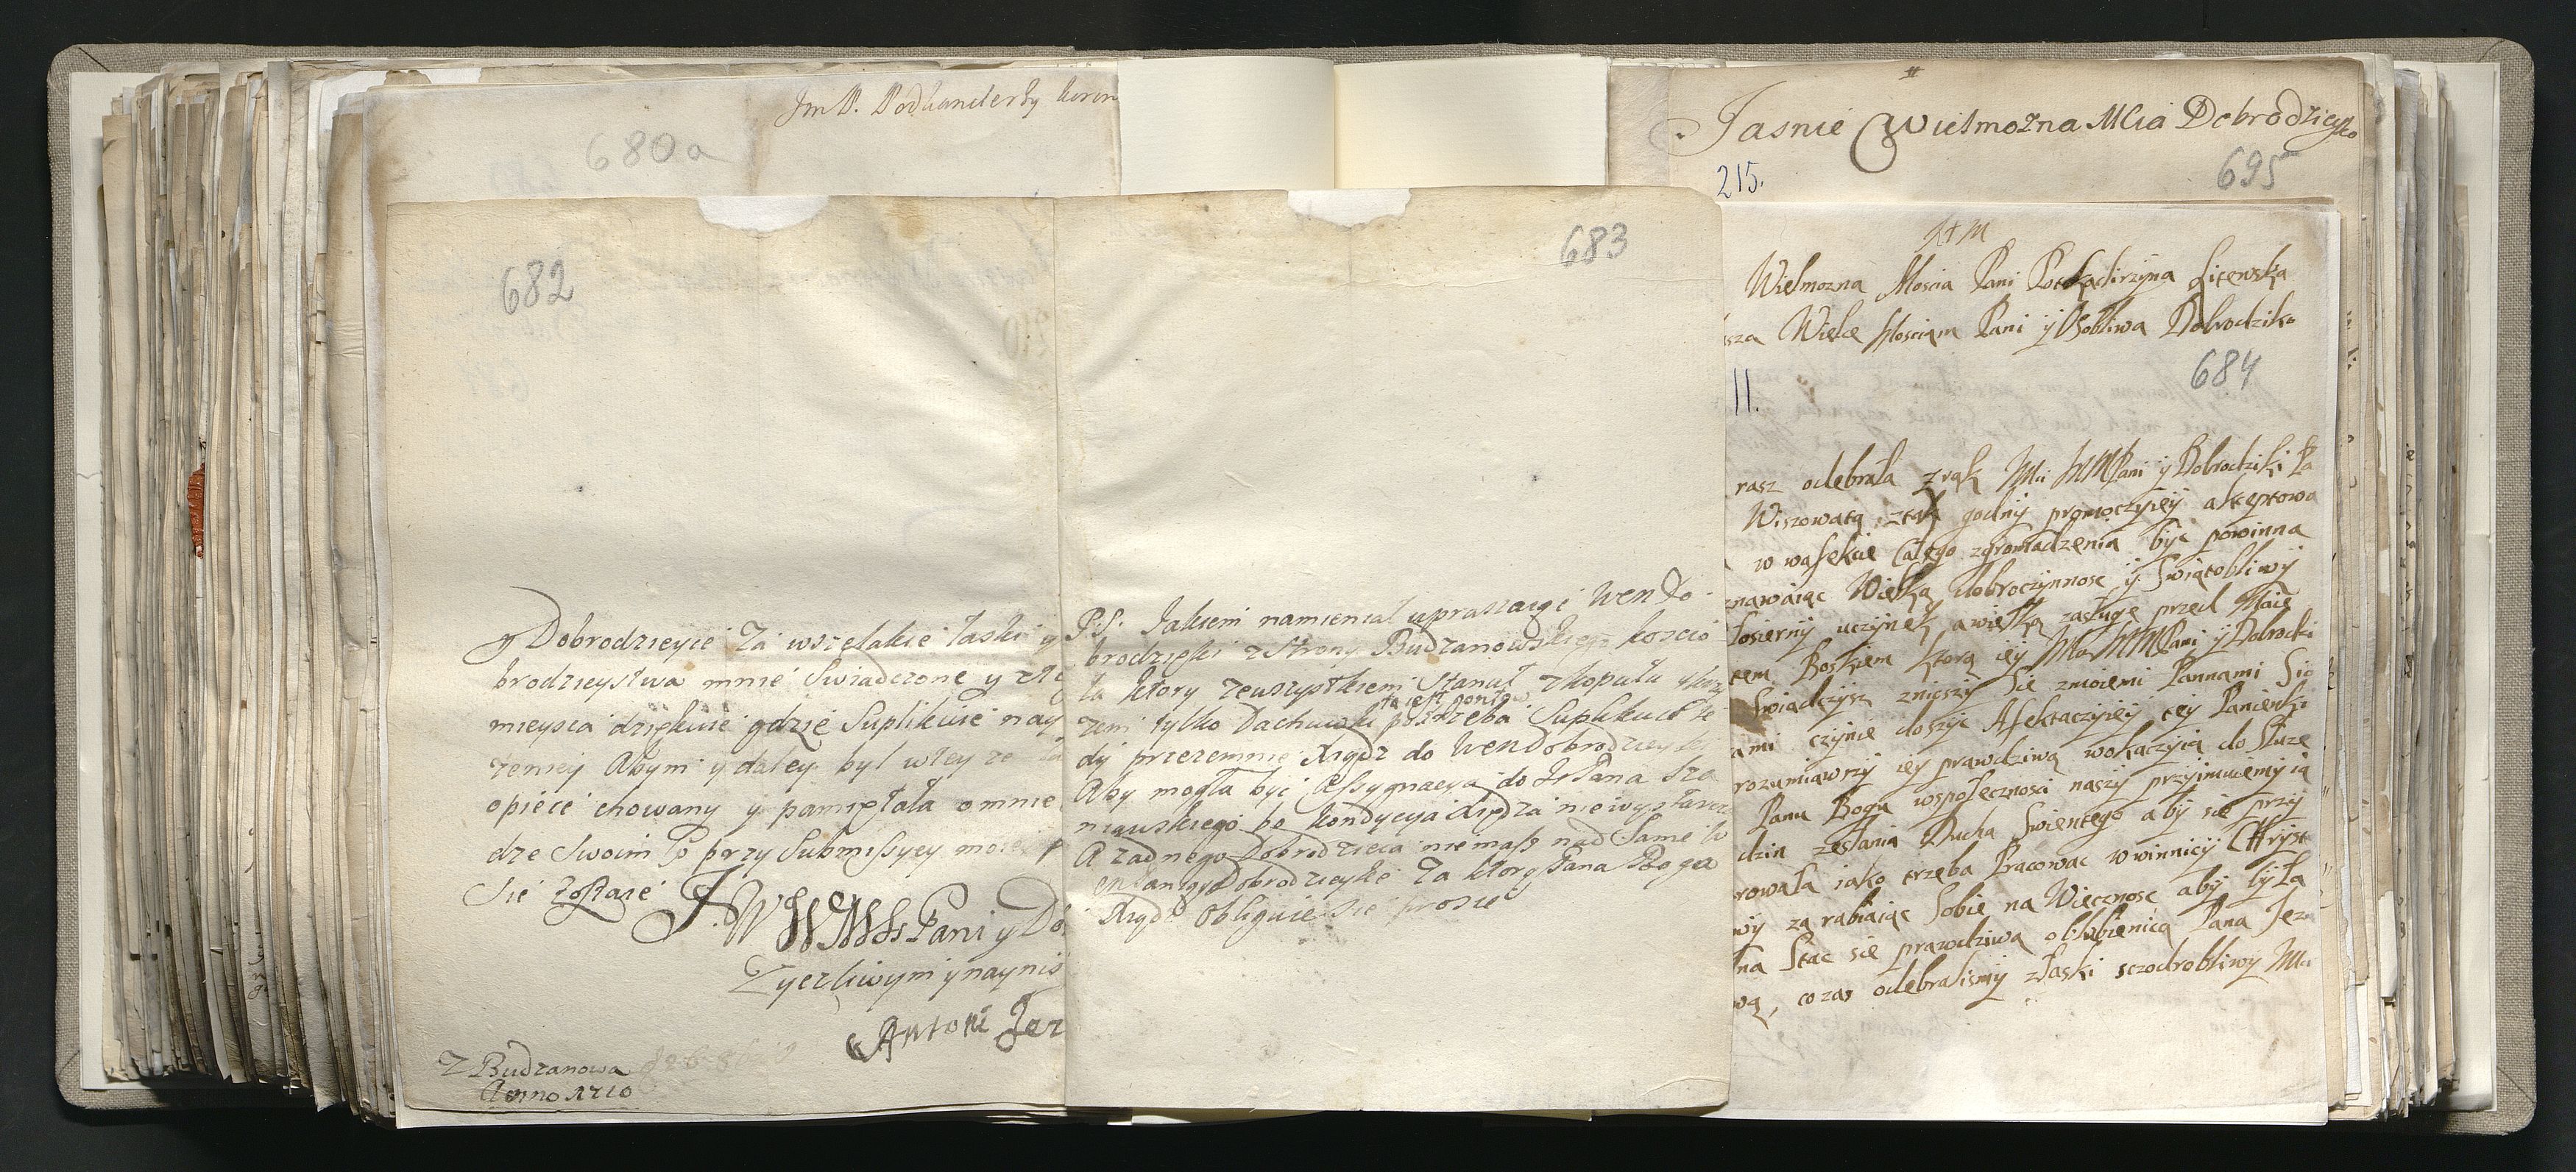 Jm P. Podkanclerzy koron
680a
682
y Dobrodzieyce za wszelakie łaski y
brodzieystwa mnie swiadczone y z te
mieysca dziękuie gdzie Suplikuie nay
zeniey Abym y daley był w tey ze
opiece chowany y pamiętała o mnie
dze Swoim Co przy Submissyey moiey
Sie Zostaie J. W WMMs Pani y Do
Zyczliwym y nayniz
Antoni Jer
Z Budzanowa
Anno 1710
683
P.S. Jakiem namieniał upraszaiąc WenDo
brodzieyki z Strony Budzanowskiego koscio
ła ktory ze wszystkiem Stanął z kopułą
to iest gontow
zem tylko Dachuwki potrzeba Suplikuie te
dy przezemnie Xiądz do WenDobrodzieyki
Aby mogła być Assygnacya do JePana Sze
niawskiego bo kondycyia Xiędza nie wystarcz
A zadnego Dobrodzieia niemasz nad Same W
en Panią Dobrodzieyke za ktorą Pana Boga
Xiądz obliguie sie prosić
Jasnie Wielmozna Mcia Dobrodzieyko
215.
695
Wielmozna Moscia Pani Podkaclirzyna Litewska
sza Wielce Mosciam Pani y Osobliwa Dobrodziko
11.
684
rasz odebrała z rąk Mci WMMPani y Dobrodziki Pa
Wiszowatą z tak godny promoczyiey akceptowa
w wasekcie Całego zgromadzenia być powinna
znawaiąc Wielką dobroczynnosc y Swiątobliwy
łosierny uczynek a wielką zasługę przed Maie
tem Boskiem ktorą iey Mci WMMPani y Dobrodzi
Swiadczysz zniosszy Sie z moiemi Pannami Sio
ami czynie doszyc Afektaczyiey tey Panienki
rozumiawszy iey prawdziwą wokaczyią do Służe
Panu Bogu wspołecznosci naszy przyimuiemy ią
dzin zesłania Ducha Swientego aby sie przy
rowała iako trzeba Pracowac w winnicy Chryst
wy zarabiaiąc Sobie na Wiecznosc aby była
na Stac sie prawdziwą oblubienicą Pana Jezu
wą, co zas odebralismy z łaski sczodrobliwy Mci